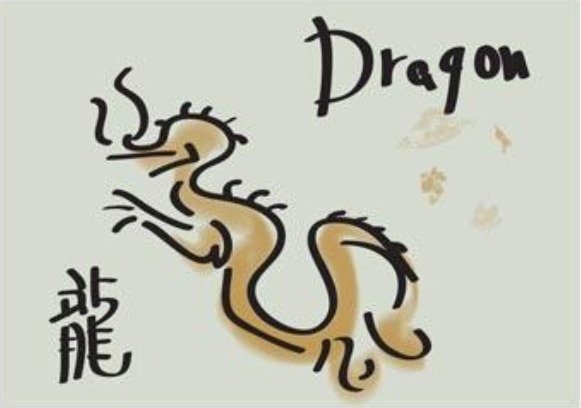 Dragon
龍